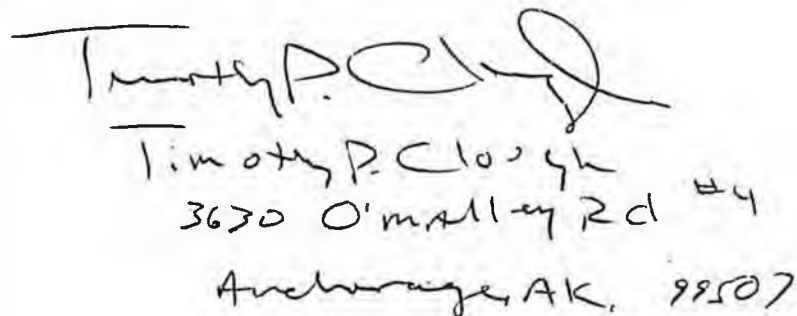 Timothy P. Clough
Timothy P. Clough
3630 O'Malley Rd #4
Anchorage, AK. 99507